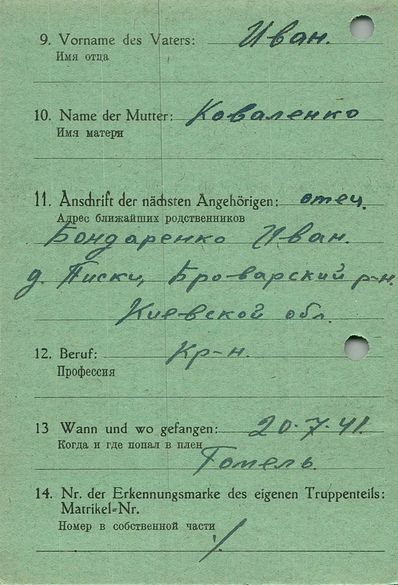 9. Vorname des Vaters: Иван.
Имя отца
10. Name der Mutter: Коваленко
Имя матери
11. Anschrift der nächsten Angehörigen: отец.
Адрес ближайших родственников
Бондаренко Иван.
д. Писки, Броварский р-н.
Киевской обл.
12. Beruf: Кр-н.
Профессия
13 Wann und wo gefangen: 20.7.41.
Когда и где попал в плен
Гомель.
14. Nr. der Erkennungsmarke des eigenen Truppenteils:
Matrikel-Nr.
Номер в собственной части